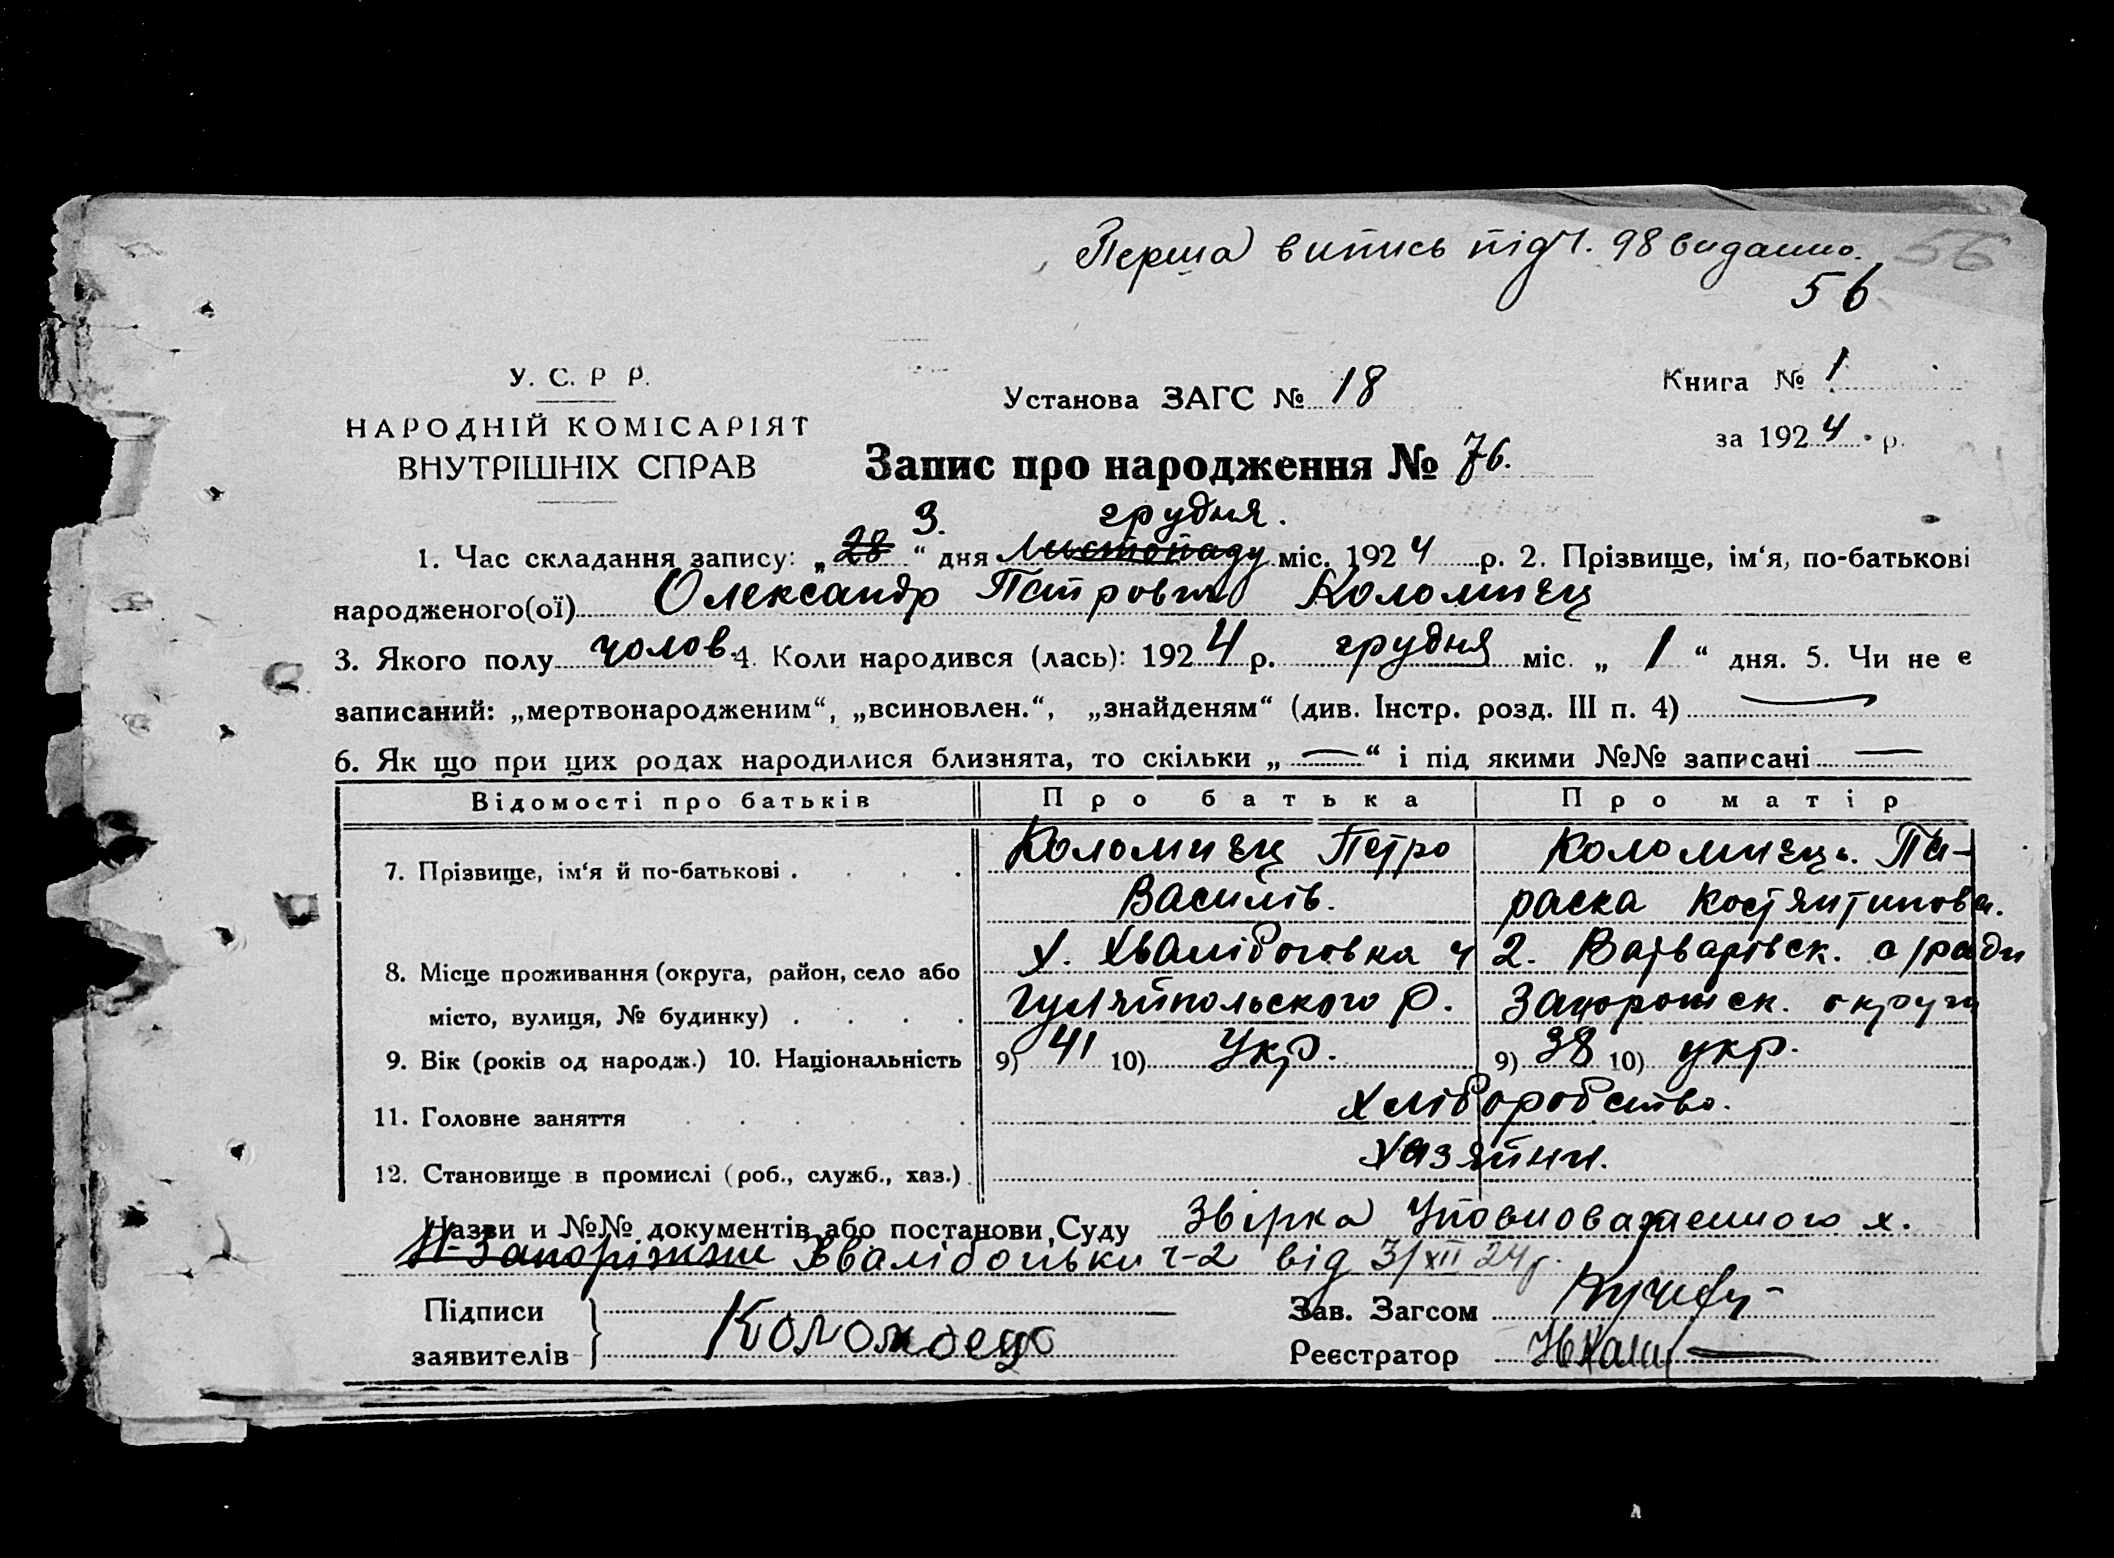 Перша випись під ч. 98 видано. 56
56
У. С. Р Р.
НАРОДНІЙ КОМІСАРІЯТ
ВНУТРІШНІХ СПРАВ
Установа ЗАГС № 18
Книга № 1
за 1924 р.
Запис про народження № 76.
3. грудня.
1. Час складання запису: „28“ дня Листопаду міс. 1924 р. 2. Прізвище, ім‘я, по-батькові
народженого(ої) Олександр Петрович Коломиец
3. Якого полу чолов. 4. Коли народився (лась): 1924 р. грудня міс. „1“ дня. 5. Чи не є
записаний: „мертвонародженим“, „всиновлен.“, „знайденям“ (див. Інстр. розд. III п. 4) —
6. Як що при цих родах народилися близнята, то скільки „—“ і під якими №№ записані —
Відомості про батьків Про батька Про матір
7. Прізвище, ім‘я й по-батькові . . . . Коломиец Петро Коломиець. Па-
Василів. раска Костянтинова.
8. Місце проживання (округа, район, село або х. Хвалібоговка ч 2. Варварівск. с/ради
місто, вулиця, № будинку) . . . . Гуляйпольского р. Запорожск. округи
9. Вік (років од народж.) 10. Національність 9) 41 10) Укр. 9) 38 10) укр.
11. Головне заняття . . . . . . хліборобство.
12. Становище в промислі (роб., служб., хаз.) хазяйни.
Назви и №№ документів або постанови Суду Звірка Уповноваженого х.
Н-Запоріжжя Хвалібоньки ч-2 від 3/XII 24 р.
Підписи
заявителів Коломоець
Зав. Загсом
Реєстратор